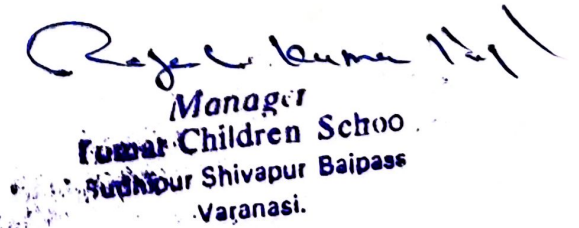 Kumar
Manager
Kumar Children Schoo
Sudhipur Shivapur Baipass
Varanasi.